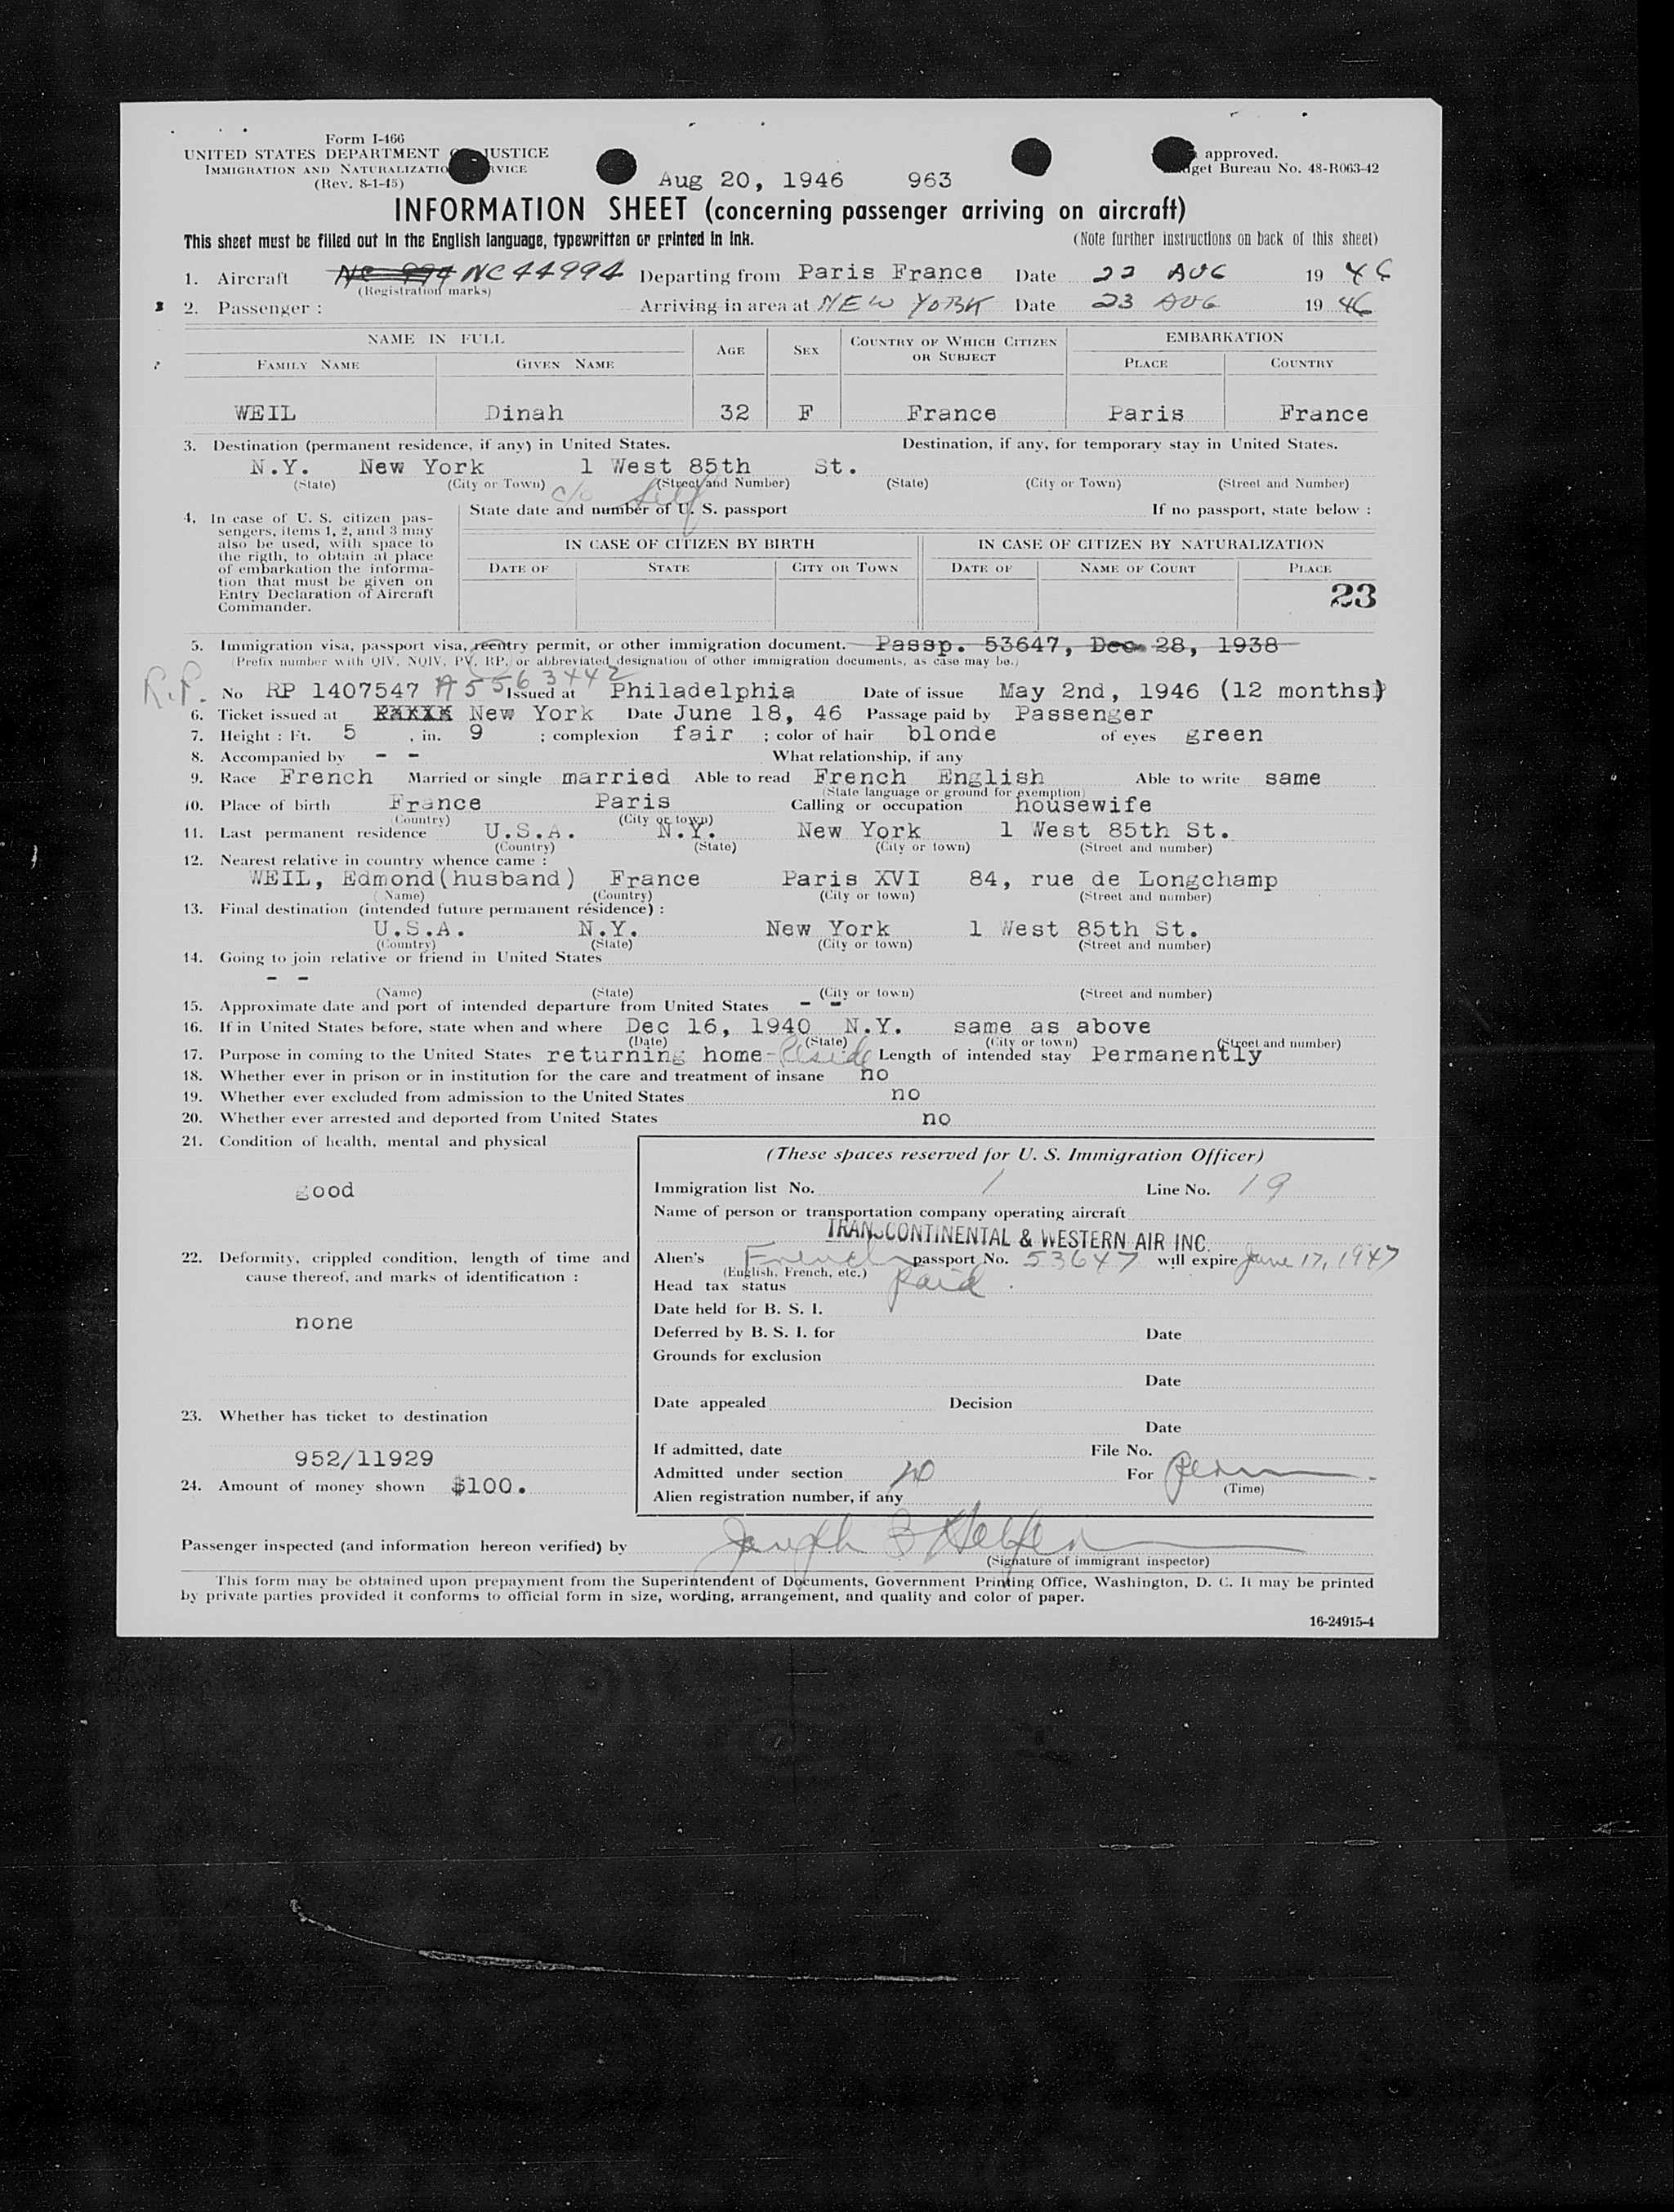 Form I-466
UNITED STATES DEPARTMENT OF JUSTICE
IMMIGRATION AND NATURALIZATION SERVICE
(Rev. 8-1-45)
approved.
Budget Bureau No. 48-R063-42
Aug 20, 1946 963
INFORMATION SHEET (concerning passenger arriving on aircraft)
This sheet must be filled out in the English language, typewritten or printed in ink. (Note further instructions on back of this sheet)
1. Aircraft NC 994 NC 44994 Departing from Paris France Date 22 AUG 19 46
(Registration marks)
2. Passenger : Arriving in area at NEW YORK Date 23 AUG 19 46
NAME IN FULL AGE SEX COUNTRY OF WHICH CITIZEN OR SUBJECT EMBARKATION
FAMILY NAME GIVEN NAME PLACE COUNTRY
WEIL Dinah 32 F France Paris France
3. Destination (permanent residence, if any) in United States. Destination, if any, for temporary stay in United States.
N.Y. New York 1 West 85th St.
(State) (City or Town) (Street and Number) (State) (City or Town) (Street and Number)
c/o Self
4. In case of U. S. citizen pas-
sengers, items 1, 2, and 3 may
also be used, with space to
the rigth, to obtain at place
of embarkation the informa-
tion that must be given on
Entry Declaration of Aircraft
Commander.
State date and number of U. S. passport If no passport, state below :
IN CASE OF CITIZEN BY BIRTH IN CASE OF CITIZEN BY NATURALIZATION
DATE OF STATE CITY OR TOWN DATE OF NAME OF COURT PLACE
23
5. Immigration visa, passport visa, reentry permit, or other immigration document. Passp. 53647, Dec 28, 1938
(Prefix number with QIV, NQIV, PV, RP, or abbreviated designation of other immigration documents, as case may be.)
R.P. No RP 1407547 A5563442 Issued at Philadelphia Date of issue May 2nd, 1946 (12 months)
6. Ticket issued at New York Date June 18, 46 Passage paid by Passenger
7. Height : Ft. 5 , in. 9 ; complexion fair ; color of hair blonde of eyes green
8. Accompanied by - - What relationship, if any
9. Race French Married or single married Able to read French English Able to write same
(State language or ground for exemption)
10. Place of birth France Paris Calling or occupation housewife
(Country) (City or town)
11. Last permanent residence U.S.A. N.Y. New York 1 West 85th St.
(Country) (State) (City or town) (Street and number)
12. Nearest relative in country whence came :
WEIL, Edmond(husband) France Paris XVI 84, rue de Longchamp
(Name) (Country) (City or town) (Street and number)
13. Final destination (intended future permanent résidence) :
U.S.A. N.Y. New York 1 West 85th St.
(Country) (State) (City or town) (Street and number)
14. Going to join relative or friend in United States
- -
(Name) (State) (City or town) (Street and number)
15. Approximate date and port of intended departure from United States - -
16. If in United States before, state when and where Dec 16, 1940 N.Y. same as above
(Date) (State) (City or town) (Street and number)
17. Purpose in coming to the United States returning home - Reside Length of intended stay Permanently
18. Whether ever in prison or in institution for the care and treatment of insane no
19. Whether ever excluded from admission to the United States no
20. Whether ever arrested and deported from United States no
21. Condition of health, mental and physical
good
22. Deformity, crippled condition, length of time and
cause thereof, and marks of identification :
none
23. Whether has ticket to destination
952/11929
24. Amount of money shown $100.
(These spaces reserved for U. S. Immigration Officer)
Immigration list No. 1 Line No. 19
Name of person or transportation company operating aircraft
TRANSCONTINENTAL & WESTERN AIR INC.
Alien's French passport No. 53647 will expire June 17, 1947
(English, French, etc.)
Head tax status Paid.
Date held for B. S. I.
Deferred by B. S. I. for Date
Grounds for exclusion
Date
Date appealed Decision
Date
If admitted, date File No.
Admitted under section For Perm
(Time)
Alien registration number, if any
Passenger inspected (and information hereon verified) by Joseph B
(Signature of immigrant inspector)
This form may be obtained upon prepayment from the Superintendent of Documents, Government Printing Office, Washington, D. C. It may be printed
by private parties provided it conforms to official form in size, wording, arrangement, and quality and color of paper.
16-24915-4